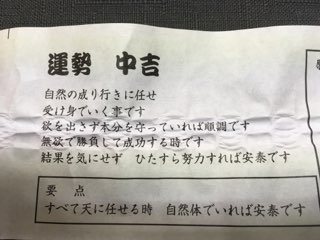 運勢　中吉
自然の成り行きに任せ
受け身でいく事です
欲を出さず本分を守っていれば順調です
無欲で勝負して成功する時です
結果を気にせず　ひたすら努力すれば安泰です
要　点
すべて天に任せる時　自然体でいれば安泰です